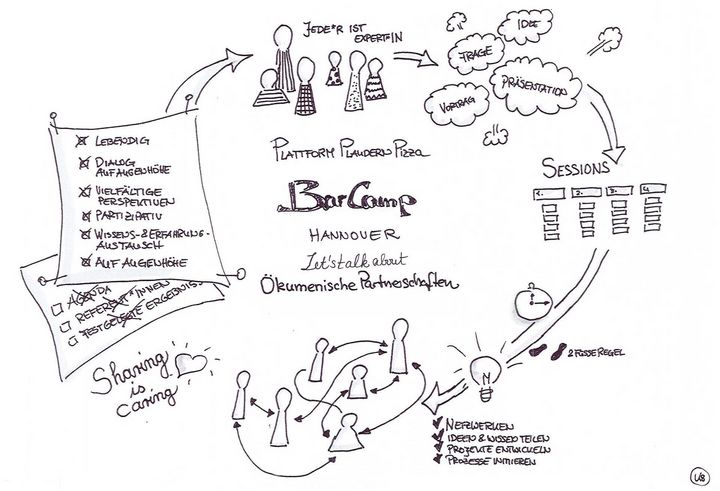 JEDE*R IST
EXPERT*IN
IDEE
FRAGE
PRÄSENTATION
VORTRAG
☒ LEBENDIG
☒ DIALOG
AUF AUGENHÖHE
☒ VIELFÄLTIGE
PERSPEKTIVEN
☒ PARTIZIPATIV
☒ WISSENS-&ERFAHRUNG-
AUSTAUSCH
☒ AUF AUGENHÖHE
☐ AGENDA
☐ REFERENT*INNEN
☐ FESTGELEGTE ERGEBNIS
PLATTFORM PLAUDERN PIZZA
BarCamp
HANNOVER
Let's talk about
Ökumenische Partnerschaften
SESSIONS
1. 2. 3. 4.
2 FÜSSE REGEL
Sharing
is
caring
✔ NETZWERKEN
✔ IDEEN & WISSEN TEILEN
✔ PROJEKTE ENTWICKELN
✔ PROZESSE INITIIEREN